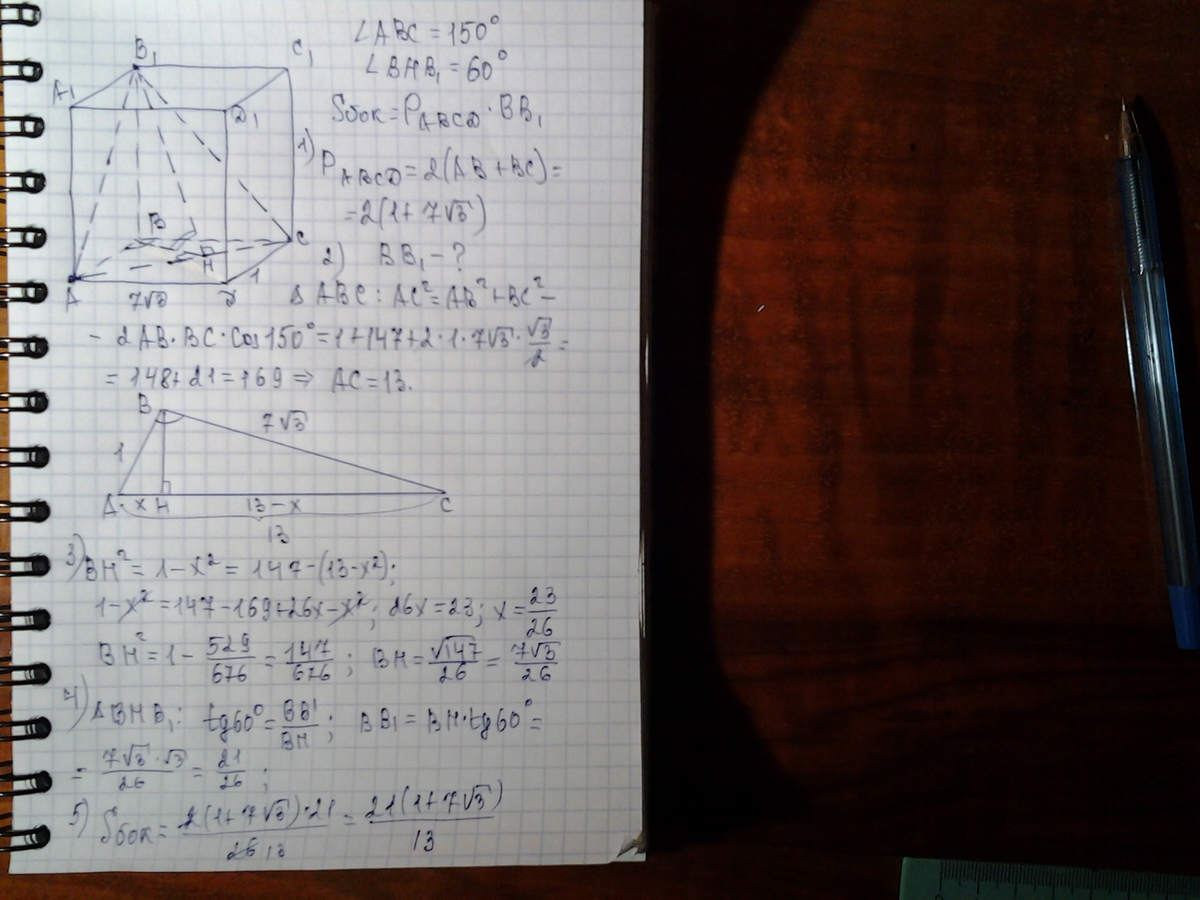 ∠ABC = 150°
∠BHB₁ = 60°
Sбок = P_ABCD · BB₁
1) P_ABCD = 2(AB + BC) =
= 2(1 + 7√3)
2) BB₁ - ?
B₁
C₁
A₁
D₁
B
C
H
1
A
7√3
D
Δ ABC : AC² = AB² + BC² -
- 2AB · BC · Cos 150° = 1 + 147 + 2 · 1 · 7√3 · √3/2 =
= 148 + 21 = 169 ⇒ AC = 13.
B
7√3
1
A x H 13 - x C
13
3) BH² = 1 - x² = 147 - (13 - x²);
1 - x² = 147 - 169 + 26x - x²; 26x = 23; x = 23/26
BH² = 1 - 529/676 = 147/676; BH = √147/26 = 7√3/26
4) Δ BHB₁: tg60° = BB₁/BH; BB₁ = BH · tg60° =
= 7√3 · √3/26 = 21/26;
5) Sбок = 2(1 + 7√3) · 21/26 13 = 21(1 + 7√3)/13